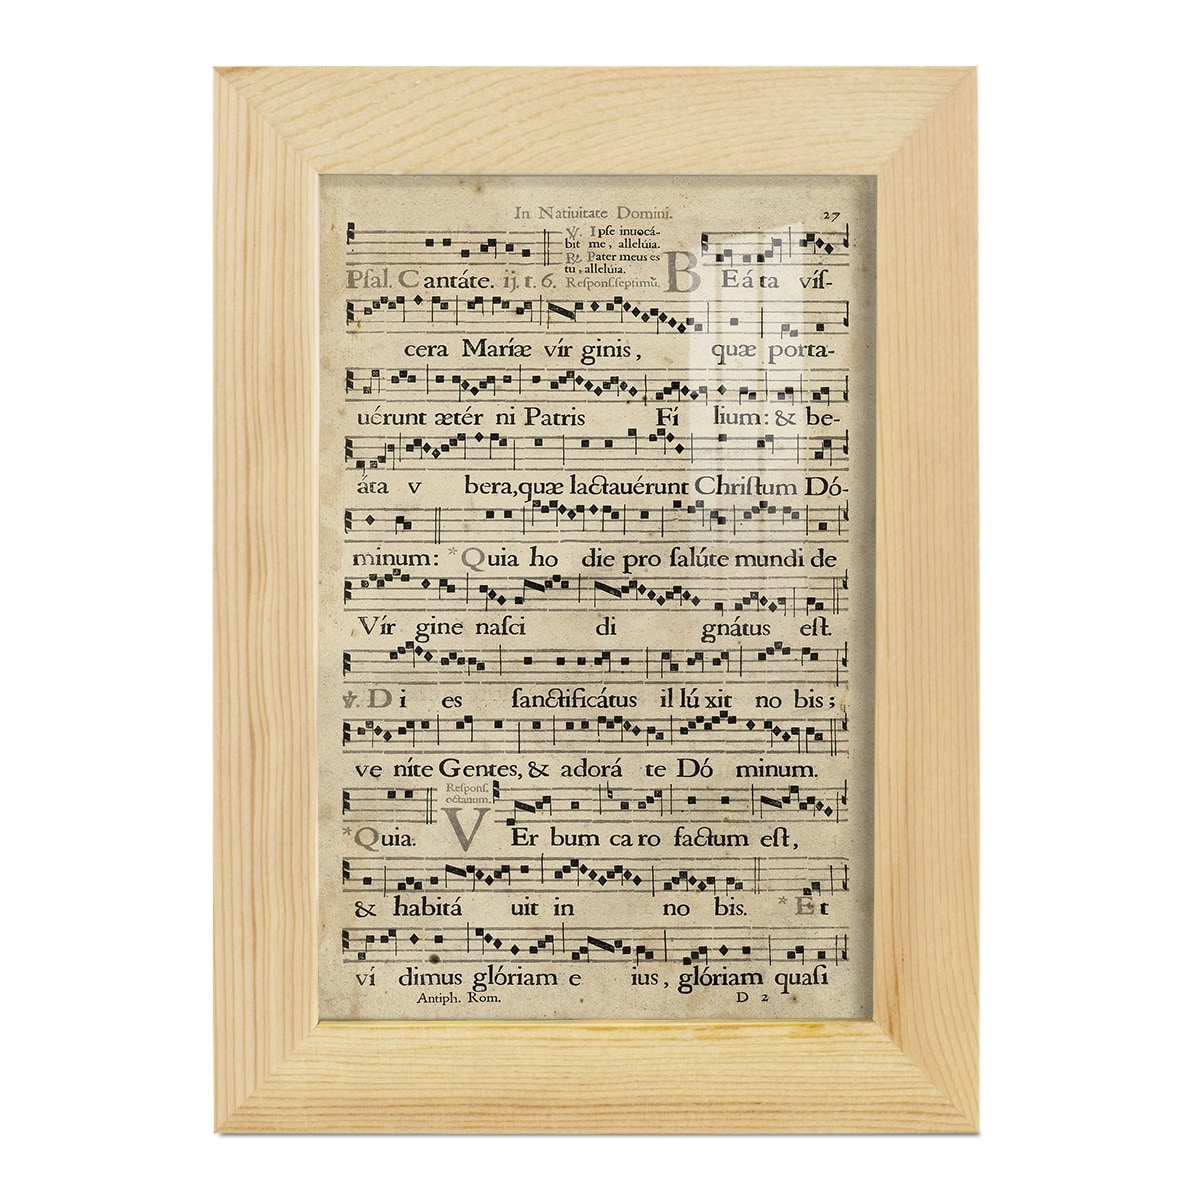 In Natiuitate Domini. 27
℣. Ipse inuocá-
bit me, allelúia.
℟. Pater meus es
tu, allelúia.
Psal. Cantáte. ij. t. 6. Respons. septimũ. BEáta viſ-
cera Maríæ vír ginis, quæ porta-
uérunt ætér ni Patris Fí lium: & be-
áta v bera, quæ lactauérunt Chriſtum Dó-
minum: *Quia ho die pro ſalúte mundi de
Vír gine naſci di gnátus eſt.
℣. Di es ſanctificátus il lú xit no bis;
ve níte Gentes, & adorá te Dó minum.
Reſponſ.
octauum.
*Quia. VEr bum ca ro factum eſt,
& habitá uit in no bis. *Et
ví dimus glóriam e ius, glóriam quaſi
Antiph. Rom. D 2